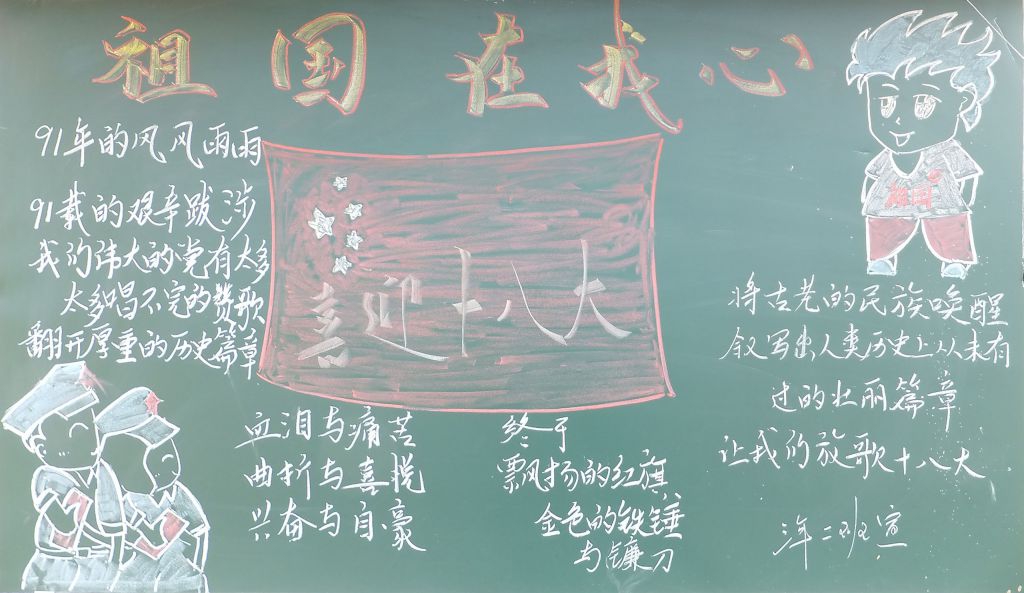 祖国在我心
91年的风风雨雨
91载的艰辛跋涉
我们伟大的党有太多
太多唱不完的赞歌
翻开厚重的历史篇章
喜迎十八大
血泪与痛苦
曲折与喜悦
兴奋与自豪
终于
飘扬的红旗
金色的铁锤
与镰刀
祖国
将古老的民族唤醒
叙写出人类历史上从未有
过的壮丽篇章
让我们放歌十八大
二班宣